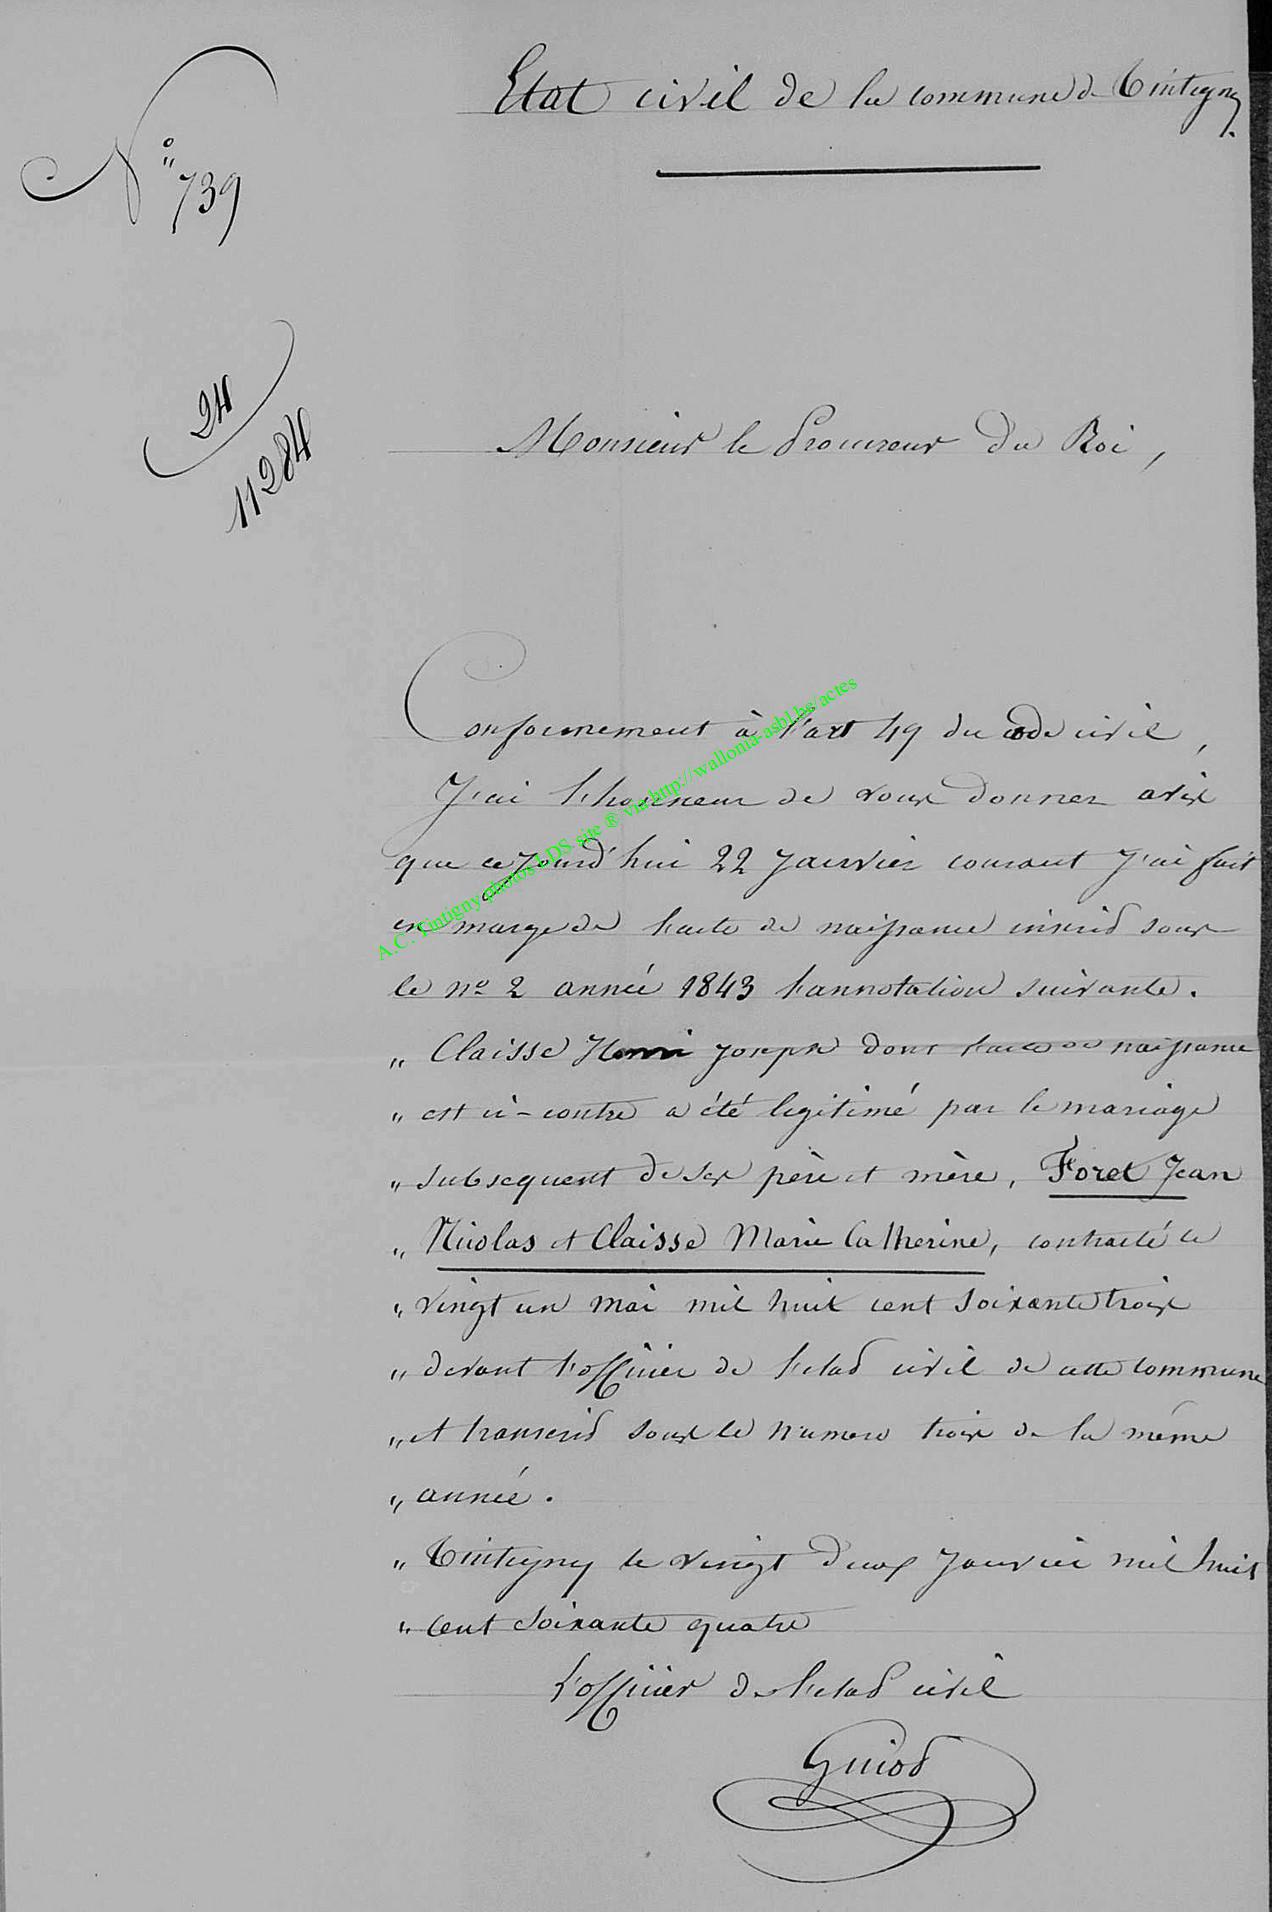 Etat civil de la commune de Tintigny.
N° 739
24
11284
Monsieur le Procureur du Roi,
Conformement à l'art 49 du code civil,
J'ai l'honneur de vous donner avis
que cejourd'hui 22 Janvier courant J'ai fait
en marge de l'acte de naissance inscrit sous
le n° 2 année 1843 l'annotation suivante.
„ Claisse Henri Joseph dont l'acte de naissance
„ est ci-contre a été legitimé par le mariage
„ subsequent de ses père et mère, Foret Jean
„ Nicolas et Claisse Marie Catherine, contracté le
„ vingt un mai mil huit cent soixante trois
„ devant l'officier de l'etat civil de cette commune
„ et transcrit sous le numero trois de la même
„ année.
„ Tintigny le vingt deux Janvier mil huit
„ cent soixante quatre
L'officier de l'etat civil
Guiot
A.C. Tintigny photos LDS site ® via http://wallonia-asbl.be/actes